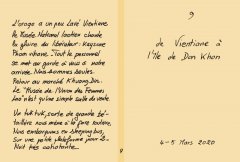 L'orage a un peu lavé Vientiane.
Le Musée National laotien chante
la gloire du libérateur: Kaysone
Phom vihane. Tout le personnel
se met au garde à vous à notre
arrivée. Nous sommes seuls.
Retour au marché Khuong Din.
Le "Musée de l'Union des Femmes
Lao" n'est qu'une simple salle de vente.
Un tuk tuk, sorte de grande
nous mène à la gare routière.
Nous embarquons en sleeping bus,
Sur une petite plateforme pour 2.
Nuit très cahotante...
9
de Vientiane à
l'île de Don Khon
4-5 Mars 2020